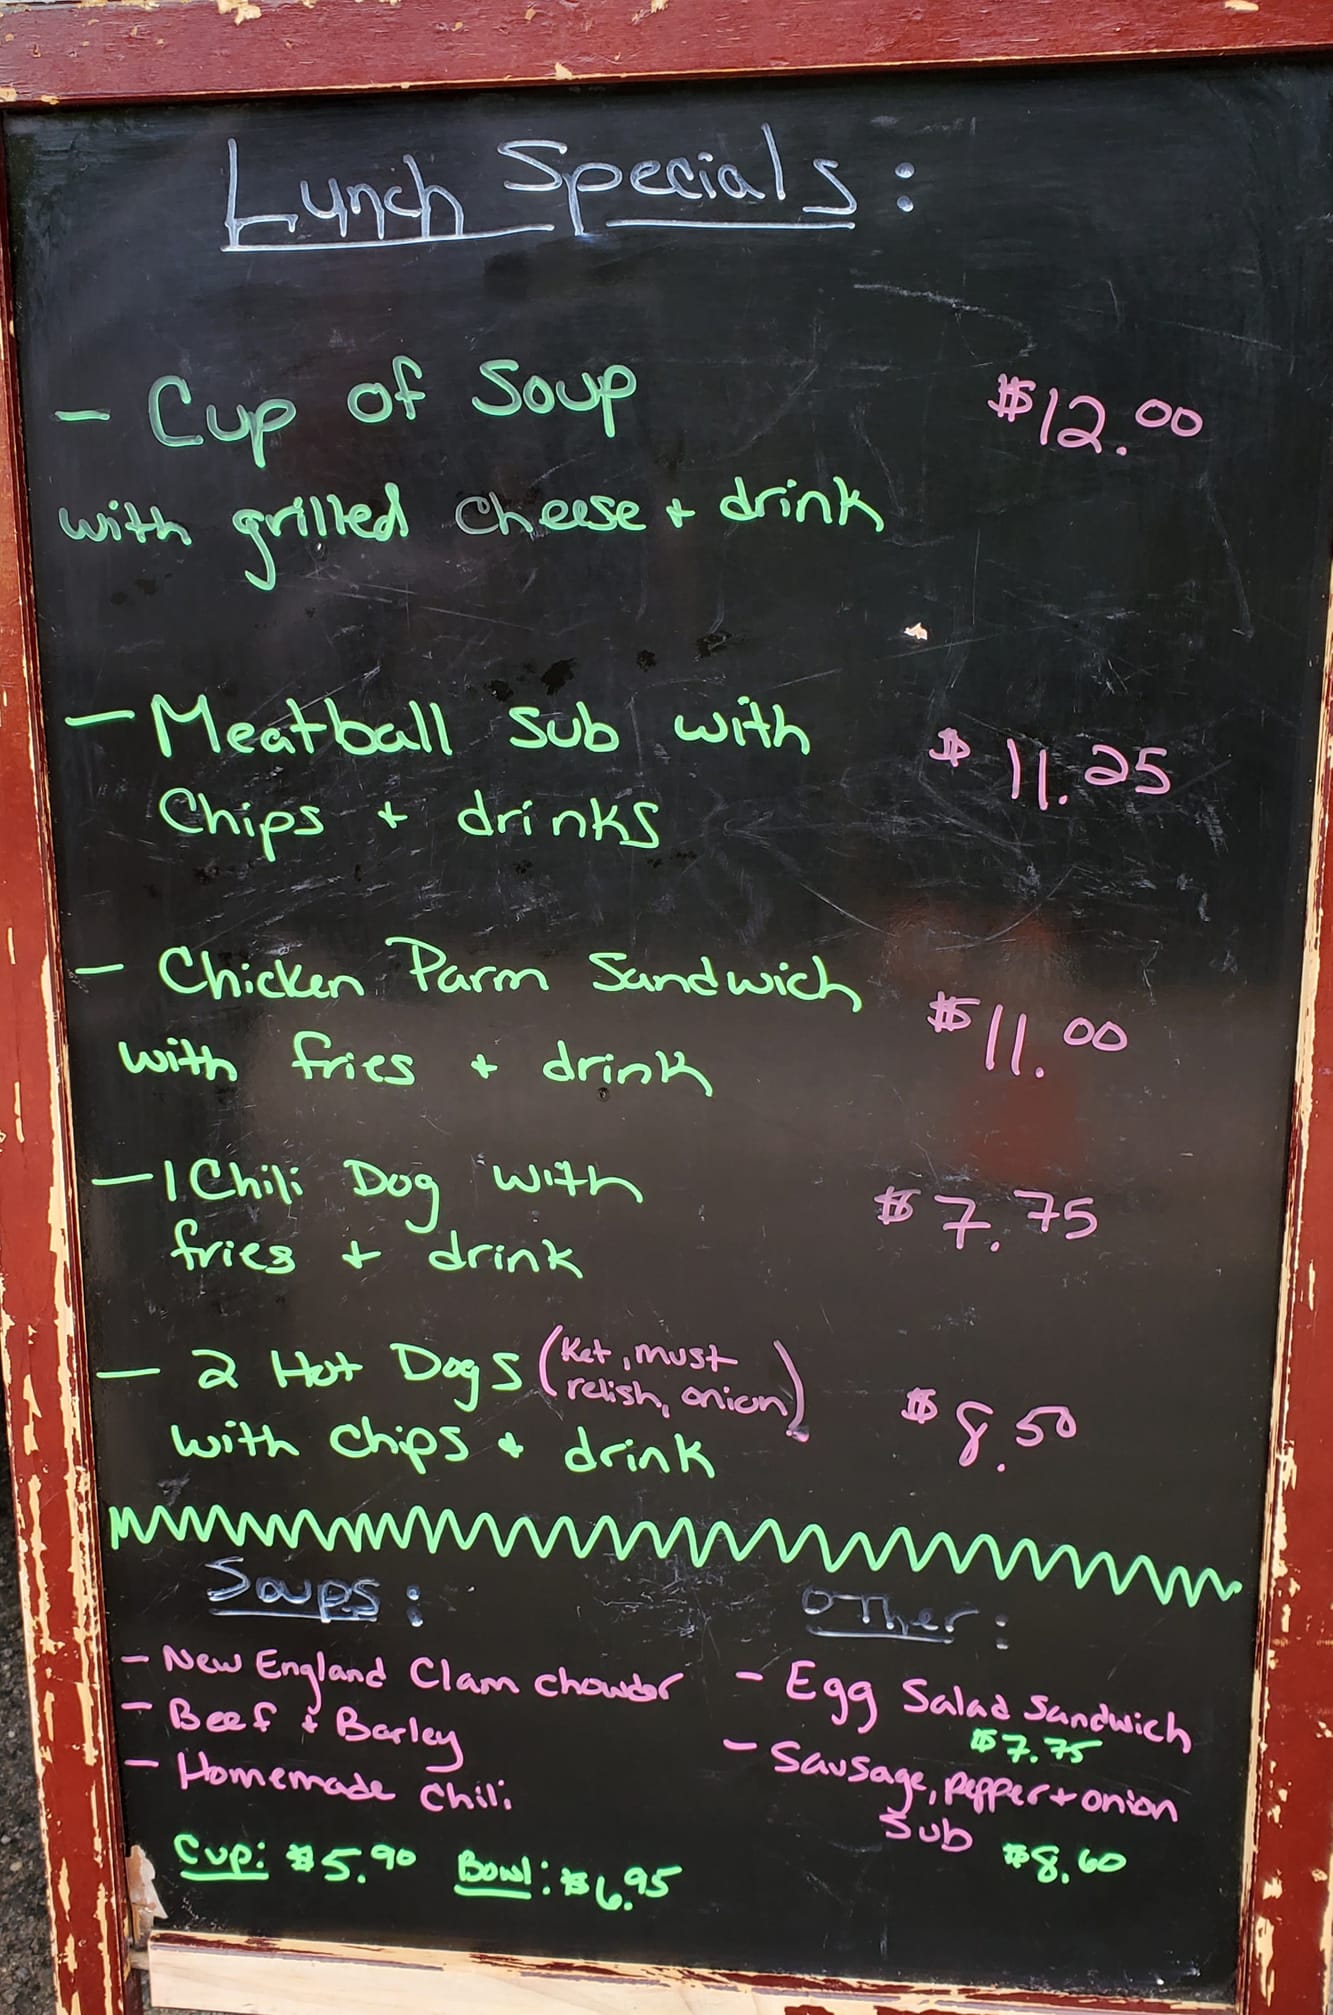 Lunch Specials:
- Cup of Soup $12.00
with grilled cheese + drink
- Meatball sub with $11.25
Chips + drinks
- Chicken Parm Sandwich $11.00
with fries + drink
- 1 Chili Dog with $7.75
fries + drink
- 2 Hot Dogs (Ket, must
relish, onion)
with chips + drink $8.50
Soups:
- New England Clam chowder
- Beef + Barley
- Homemade Chili
Cup: $5.90 Bowl: $6.95
Other:
- Egg Salad Sandwich
$7.75
- Sausage, pepper + onion
Sub $8.60